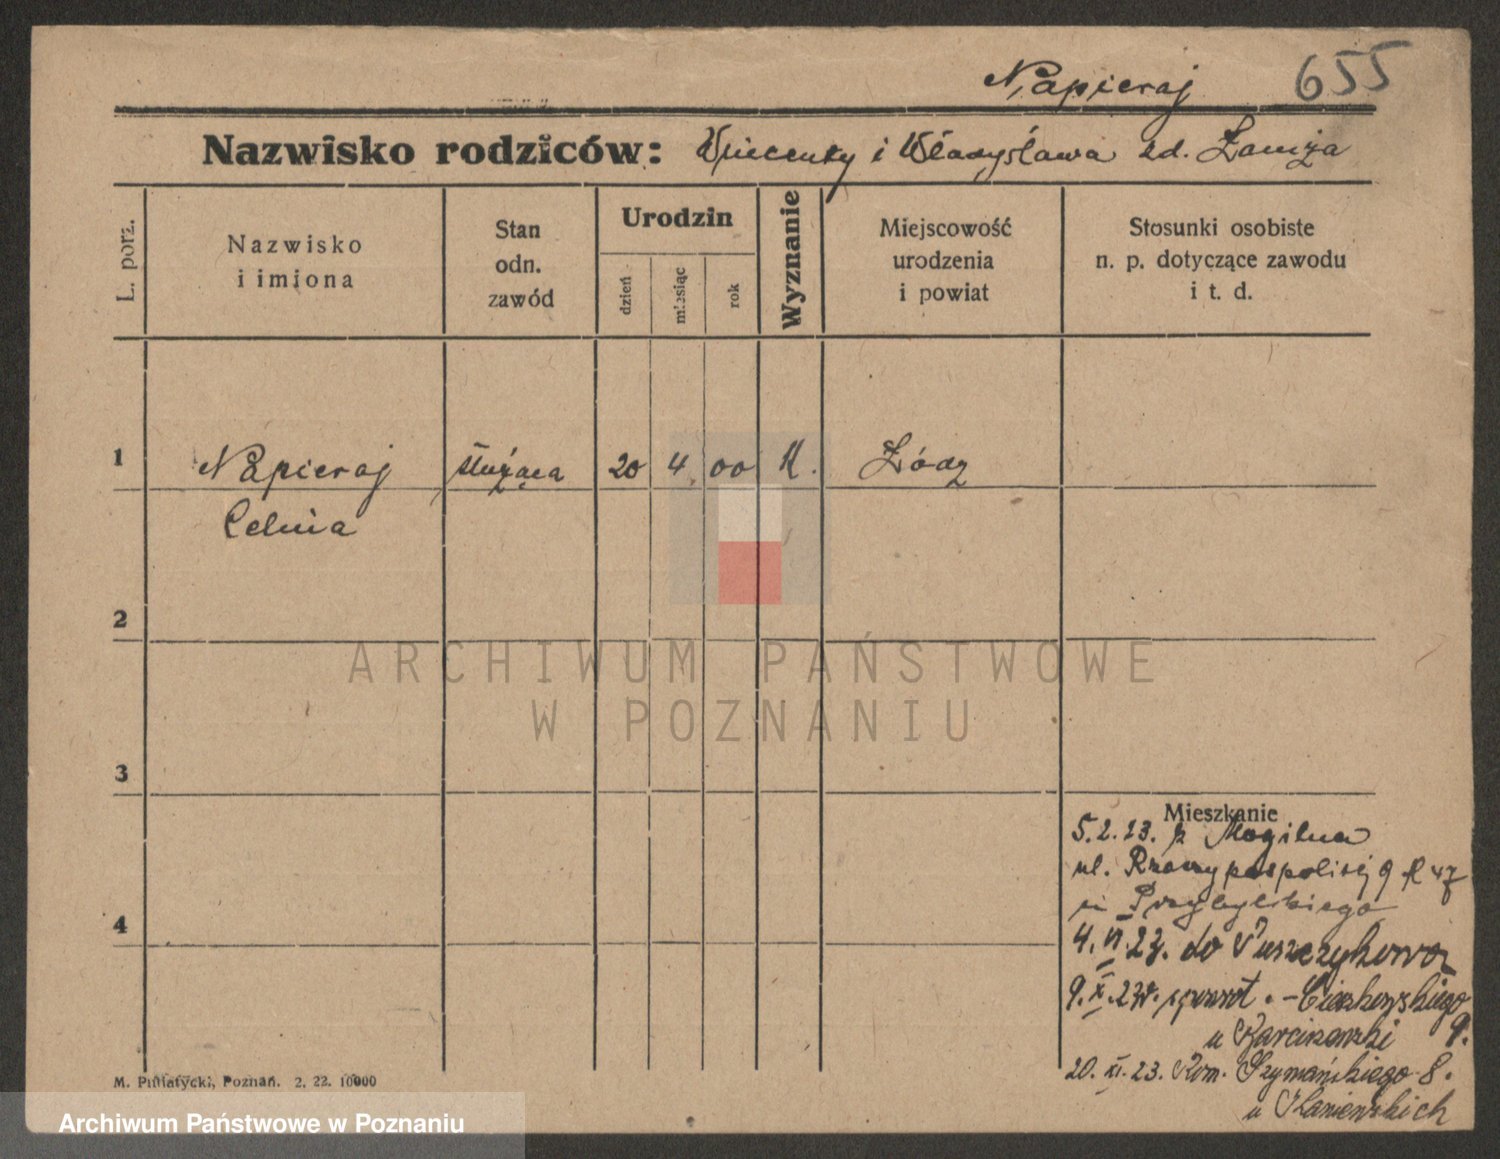 Napieraj 655
Nazwisko rodziców: Wincenty i Władysława zd.
L. porz.
Nazwisko
i imiona
Stan
odn.
zawód
Urodzin
dzień
miesiąc
rok
Wyznanie
Miejscowość
urodzenia
i powiat
Stosunki osobiste
n. p. dotyczące zawodu
i t. d.
1 Napieraj służąca 20 4 00 K. Łódz
Celina
2
ARCHIWUM PAŃSTWOWE
W POZNANIU
3
Mieszkanie
5.2.23. z Mogilna
ul. Rzeczypospolitej 9
u Przybylskiego
4
4.VI.23. do Puszczykowa
9.X.23r. powrót. – Cieszkowskiego
u 9.
20.XI.23. Rom. Szymańskiego 8.
u Kaniewskich
M. Pillatycki, Poznań. 2. 22. 10000
Archiwum Państwowe w Poznaniu